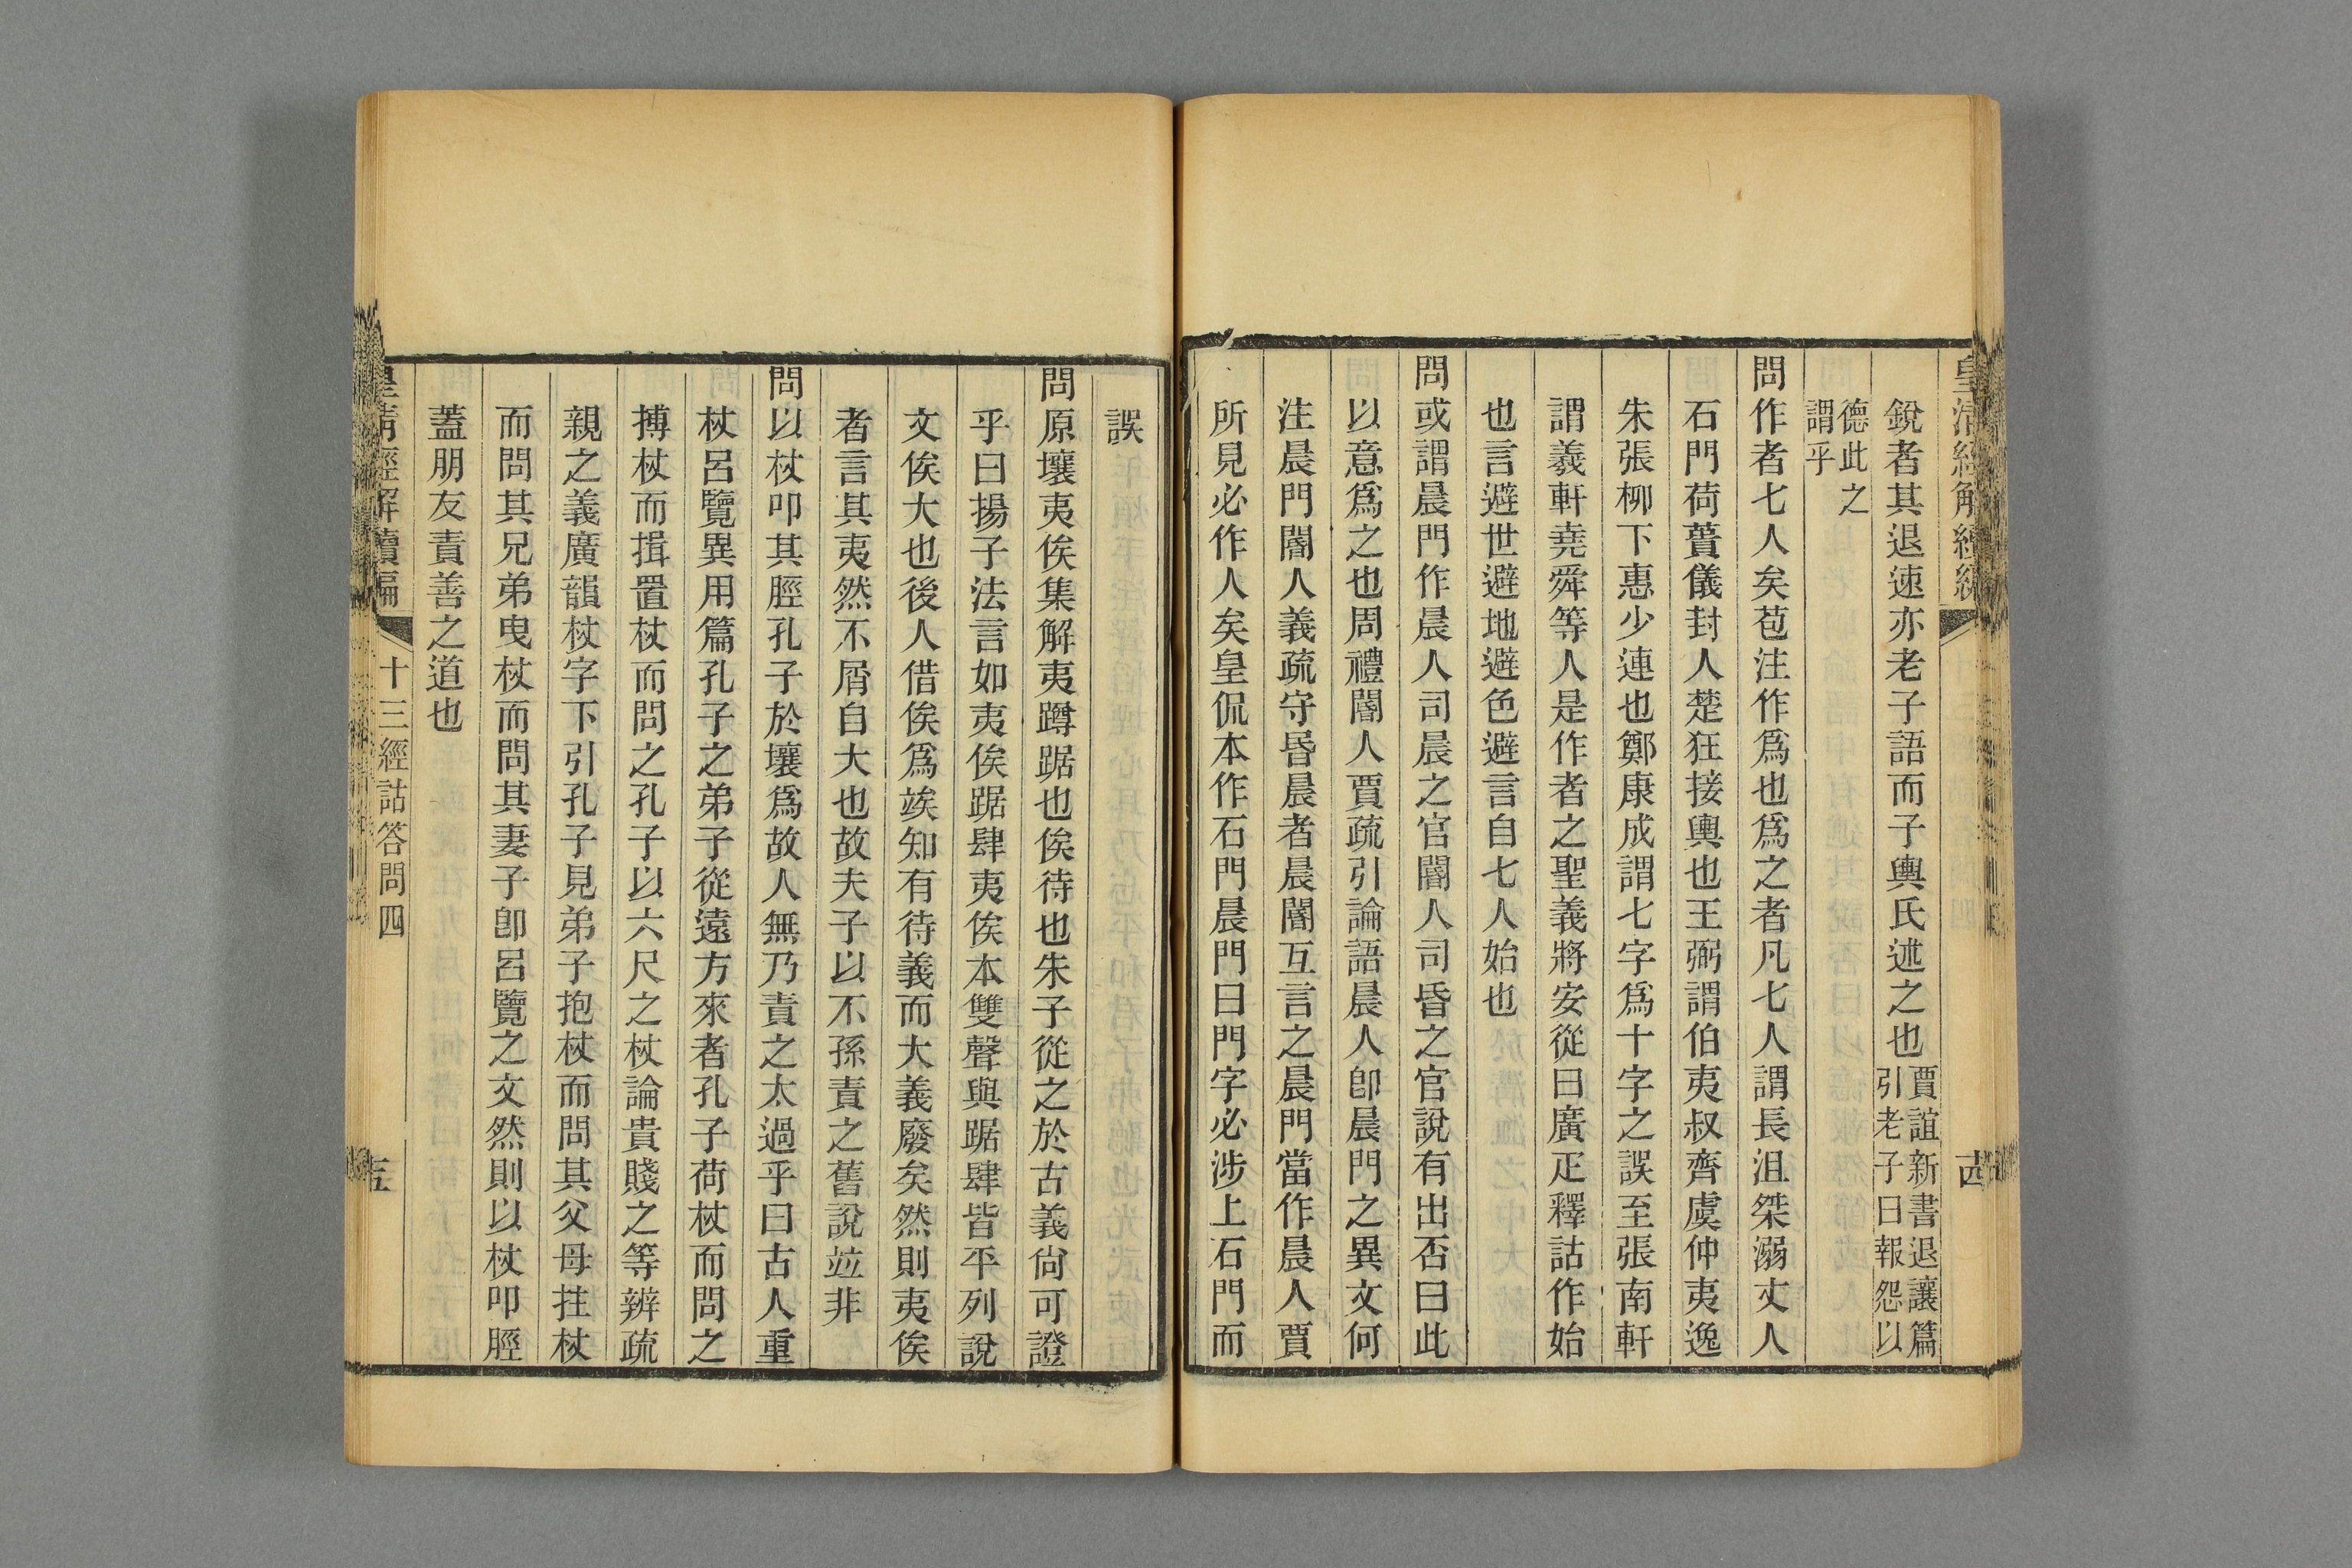 銳者其退速亦老子語而子輿氏述之也賈誼新書退讓篇引老子曰報怨以
德此之謂乎
問作者七人矣苞注作爲也爲之者凡七人謂長沮桀溺丈人
石門荷蕢儀封人楚狂接輿也王弼謂伯夷叔齊虞仲夷逸
朱張柳下惠少連也鄭康成謂七字爲十字之誤至張南軒
謂羲軒堯舜等人是作者之聖義將安從曰廣疋釋詁作始
也言避世避地避色避言自七人始也
問或謂晨門作晨人司晨之官閽人司昏之官說有出否曰此
以意爲之也周禮閽人賈疏引論語晨人卽晨門之異文何
注晨門閽人義疏守昏晨者晨閽互言之晨門當作晨人賈
所見必作人矣皇侃本作石門晨門曰門字必涉上石門而
誤
問原壤夷俟集解夷蹲踞也俟待也朱子從之於古義尙可證
乎曰揚子法言如夷俟踞肆夷俟本雙聲與踞肆皆平列說
文俟大也後人借俟爲竢知有待義而大義廢矣然則夷俟
者言其夷然不屑自大也故夫子以不孫責之舊說竝非
問以杖叩其脛孔子於壤爲故人無乃責之太過乎曰古人重
杖呂覽異用篇孔子之弟子從遠方來者孔子荷杖而問之
搏杖而揖置杖而問之孔子以六尺之杖諭貴賤之等辨疏
親之義廣韻杖字下引孔子見弟子抱杖而問其父母拄杖
而問其兄弟曳杖而問其妻子卽呂覽之文然則以杖叩脛
蓋朋友責善之道也
皇清經解續編
十三經詁答問四